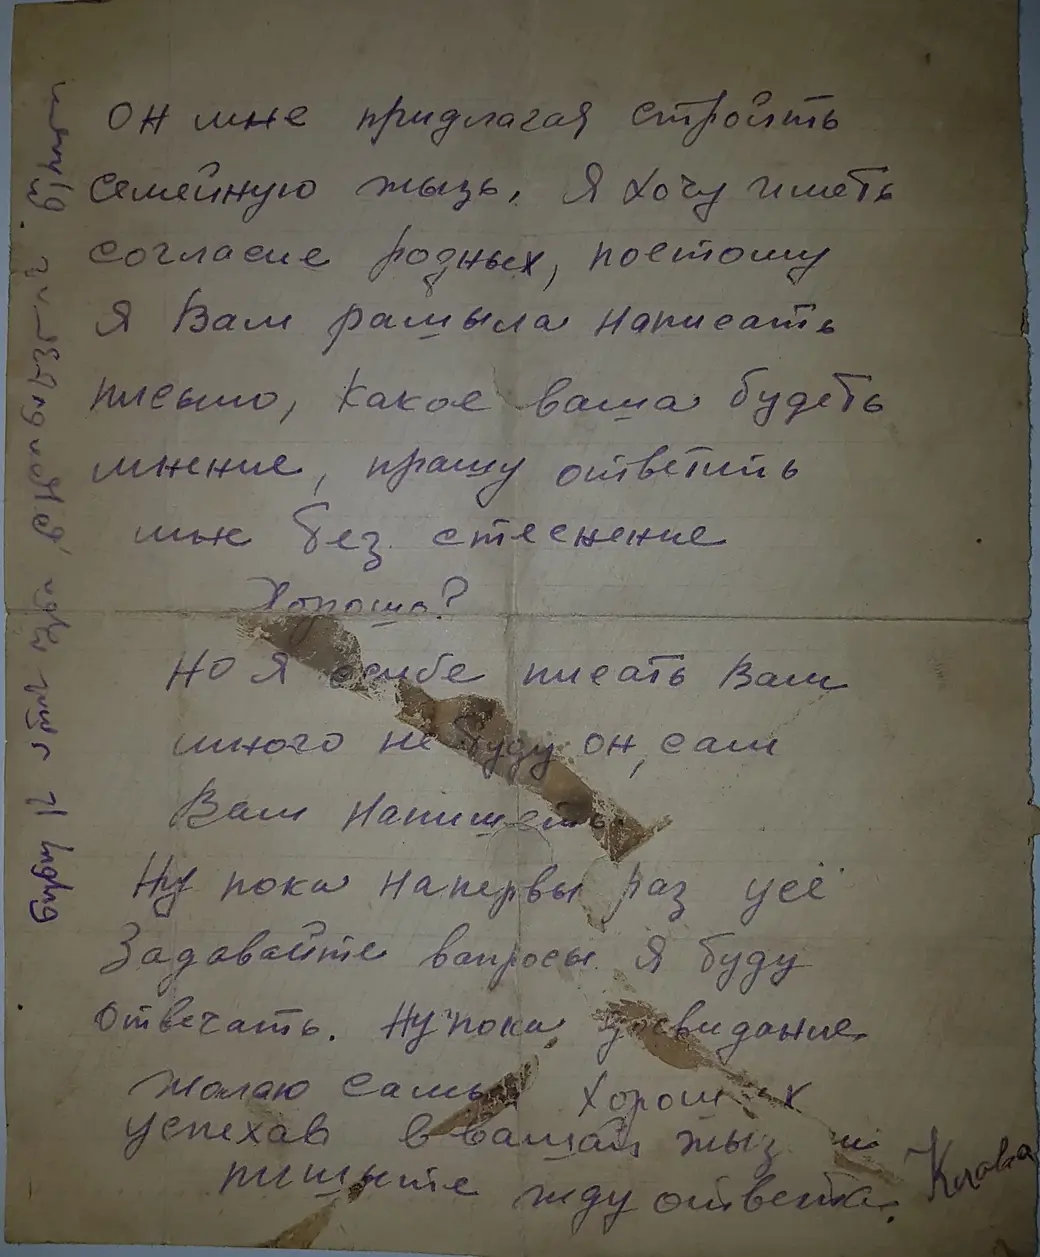 он мне придлагая строить
семейную жызь. Я хочу иметь
согласие родных, поетому
я Вам рашыла написать
письмо, какое ваша будеть
мнение, прашу ответить
мне без стеснение
Хорошо?
но я осибе писать Вам
много не буду он, сам
Вам напишеть.
Ну пока напервы раз усё
Задавайте вапросы. Я буду
отвечать. Ну пока досвидание
жалаю самы хороших
успехав в вашай жыз
пишыте жду ответа. Клава